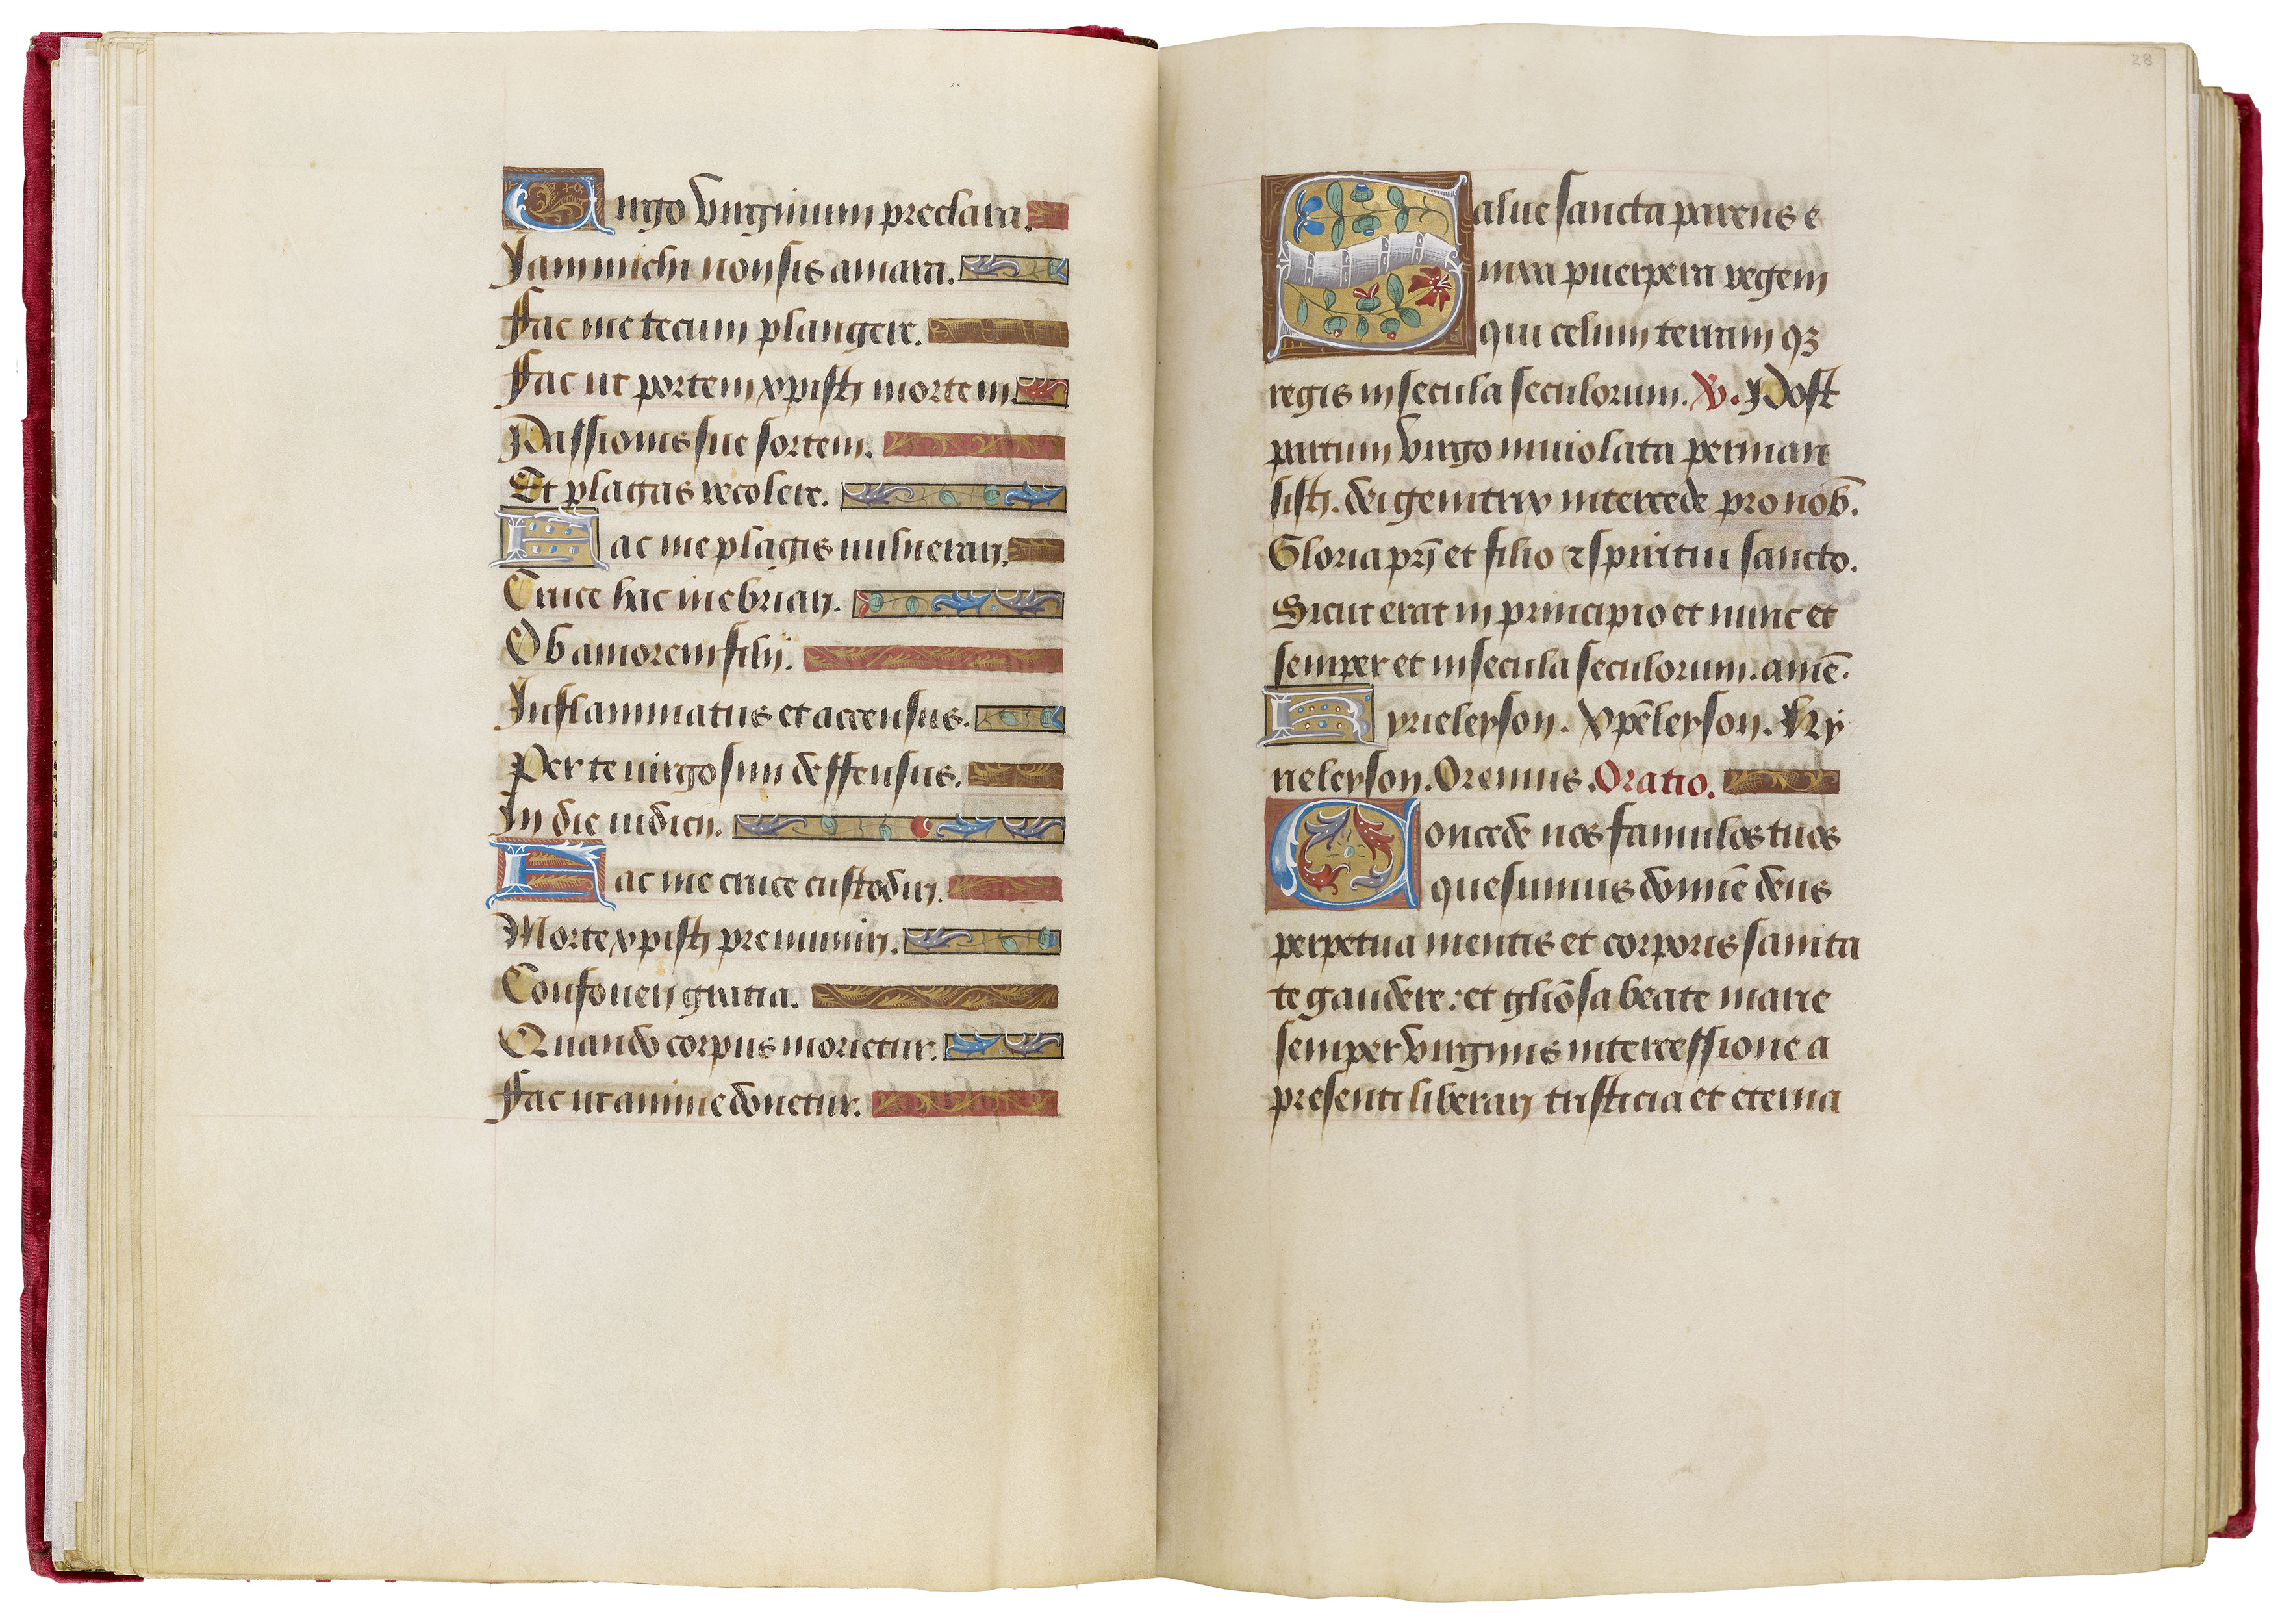 Virgo virginum preclara.
Jam michi non sis amara.
Fac me tecum plangere.
Fac ut portem xpisti mortem.
Passionis sue sortem.
Et plagas recolere.
Fac me plagis vulnerari.
Cruce hac inebriari.
Ob amorem filij.
Inflammatus et accensus.
Per te virgo sim deffensus.
In die iudicij.
Fac me cruce custodiri.
Morte xpisti premuniri.
Confoveri gratia.
Quando corpus morietur.
Fac ut anime donetur.
28
Salve sancta parens e
nixa puerpera regem
qui celum terram qz
regis in secula seculorum. V. Post
partum virgo inviolata perman
sisti. dei genitrix intercede pro nob̄.
Gloria pr̄i et filio ⁊ spiritui sancto.
Sicut erat in principio et nunc et
semper et in secula seculorum. amē.
Kyrieleyson. Xp̄eleyson. Kyr
rieleyson. Oremus. Oratio.
Concede nos famulos tuos
quesumus domiē deus
perpetua mentis et corporis sanita
te gaudere: et gliōsa beate marie
semper virginis intercessione a
presenti liberari tristicia et eterna